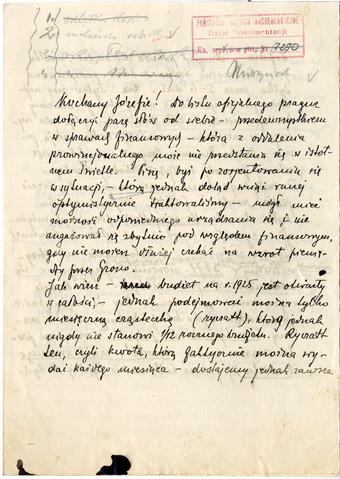 1)
2)
PAŃSTWOWE MUZEUM ARCHEOLOGICZNE
Dział Dokumentacji
Ks. wpływów poz. Nr 7290
Kochany Józefie! Do listu oficjalnego pragnę
dołączyć parę słów od siebie – przedewszystkiem
w sprawach finansowych – która z oddalenia
prowincjonalnego może nie przedstawia się w istot-
nem świetle. Piszę, byś po zorjentowaniu się
w sytuacji, – którą jednak dotąd wciąż raczej
optymistycznie traktowaliśmy – mógł mieć
możność odpowiedniego urządzania się i nie
angażował się zbytnio pod względem finansowym,
gdy nie możesz dłużej czekać na zwrot pienię-
dzy przez Grono.
Jak wiesz – budżet na r. 1925 jest otwarty
w całości, – jednak podejmować można tylko
miesięczną cząsteczkę (ryczałt), którą jednak
nigdy nie stanowi 1/12 rocznego budżetu. Ryczałt
ten, czyli kwotę, którą faktycznie można wy-
dać każdego miesiąca – dostajemy jednak zawsze